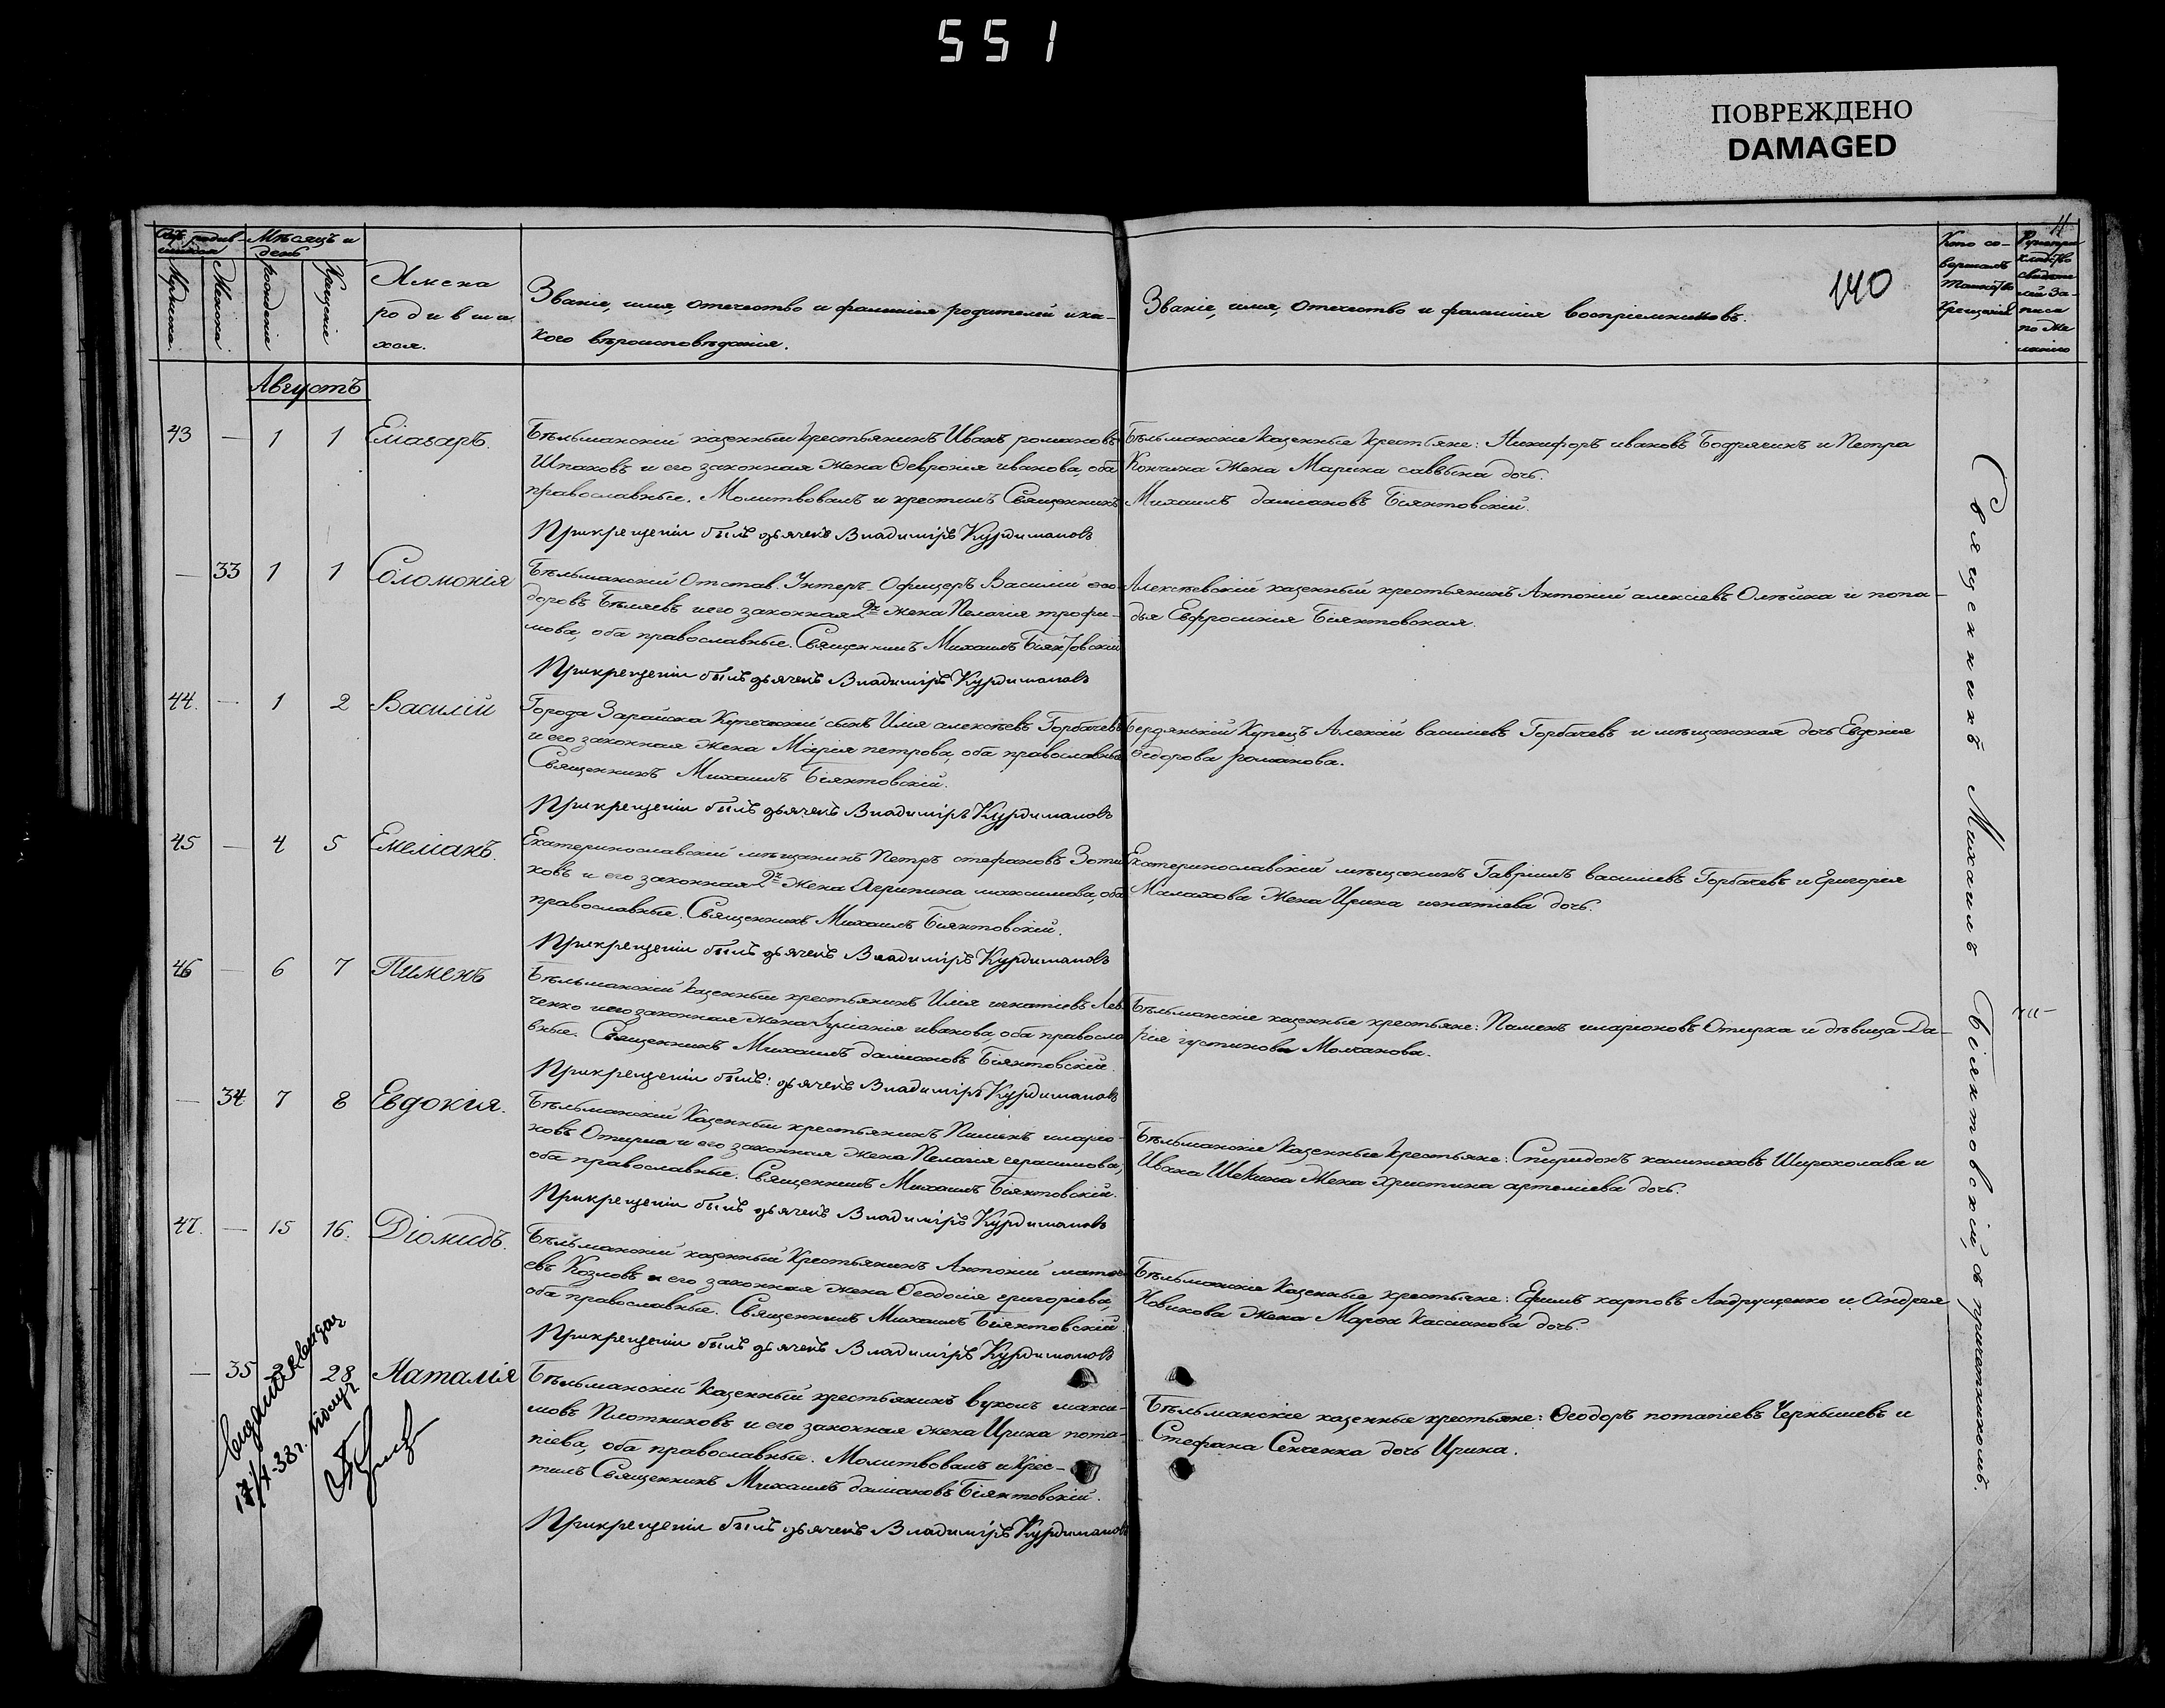 551
ПОВРЕЖДЕНО
DAMAGED
140
Мѣсяцъ и
день
Мужеска
Женска
рожденія
Крещенія
Имена
родивша
хся.
Званіе, имя, отечество и фамилія родителей и ка-
кого вѣроисповѣданія.
Званіе, имя, отечество и фамилія воспріемниковъ.
Кто со-
вершалъ
таинство
Крещенія
Августъ
43 — 1 1 Еліазаръ.
Бѣльманскій казенный крестьянинъ Иванъ романовъ
Шпаковъ и его законная жена Ѳевронія иванова, оба
православные. Молитвовалъ и крестилъ Священникъ
Михаилъ даміановъ Біянтовскій.
При крещеніи былъ дьячекъ Владиміръ Курдимановъ
Бѣльманскіе казенные крестьяне: Никифоръ ивановъ Бодрячинъ и Петра
Кончина жена Марина саввына дочь.
— 33 1 1 Соломонія
Бѣльманскій Отстав. Унтеръ-Офицеръ Василій ѳео-
доровъ Бѣляевъ и его законная 2я жена Пелагія трофи-
мова, оба православные. Священникъ Михаилъ Біянтовскій
При крещеніи былъ дьячекъ Владиміръ Курдимановъ
Алексѣевскій казенный крестьянинъ Антоній алексіевъ Олѣйника и попа-
дья Евфросинія Біянтовская.
44. — 1 2 Василій
Города Зарайска Купеческій сынъ Илія алексѣевъ Горбачевъ
и его законная жена Марія петрова, оба православные
Священникъ Михаилъ Біянтовскій.
При крещеніи былъ дьячекъ Владиміръ Курдимановъ
Бердянскій Купецъ Алексій василіевъ Горбачевъ и мѣщанская дочь Евдокія
ѳедорова романова.
45 — 4 5 Емеліанъ.
Екатеринославскій мѣщанинъ Петръ стефановъ Зоти-
ковъ и его законная 2я жена Агрипина максимова, оба
православные. Священникъ Михаилъ Біянтовскій.
При крещеніи былъ дьячекъ Владиміръ Курдимановъ
Екатеринославскій мѣщанинъ Гавріилъ василіевъ Горбачевъ и Григорія
Малахова жена Ирина игнатіева дочь.
46 — 6 7 Пименъ
Бѣльманскій казенный крестьянинъ Илія игнатіевъ Лев-
ченко и его законная жена Іуліанія иванова, оба правосла
вные. Священникъ Михаилъ даміановъ Біянтовскій.
При крещеніи былъ: дьячекъ Владиміръ Курдимановъ
Бѣльманскіе казенные крестьяне: Пименъ иларіоновъ Отирка и дѣвица Да-
рія іустинова Молчанова.
— 34 7 8 Евдокія.
Бѣльманскій Казенный крестьянинъ Пименъ иларіо-
новъ Отирка и его законная жена Пелагія герасимова,
оба православные. Священникъ Михаилъ Біянтовскій.
При крещеніи былъ дьячекъ Владиміръ Курдимановъ
Бѣльманскіе Казенные крестьяне: Спиридонъ калиниковъ Широколава и
Ивана Шекина жена христина артеміева дочь.
47. — 15 16. Діомидъ.
Бѣльманскій казенный Крестьянинъ Антоній матѳе-
евъ Козловъ и его законная жена Ѳеодосія григоріева,
оба православные. Священникъ Михаилъ Біянтовскій.
При крещеніи былъ дьячекъ Владиміръ Курдимановъ
Бѣльманскіе Казенные крестьяне: Ефимъ карповъ Андрущенко и Андрея
Новикова жена Марѳа Кассианова дочь.
— 35 28 Наталія
Бѣльманскій Казенный крестьянинъ вуколъ макси-
мовъ Плотниковъ и его законная жена Ирина пота-
піева, оба православные. Молитвовалъ и крес-
тилъ Священникъ Михаилъ даміановъ Біянтовскій.
При крещеніи былъ дьячекъ Владиміръ Курдимановъ
Бѣльманскіе казенные крестьяне: Ѳеодоръ потапіевъ Чернышевъ и
Стефана Сенченка дочь Ирина.
Священникъ Михаилъ Біянтовскій, съ причетникомъ.